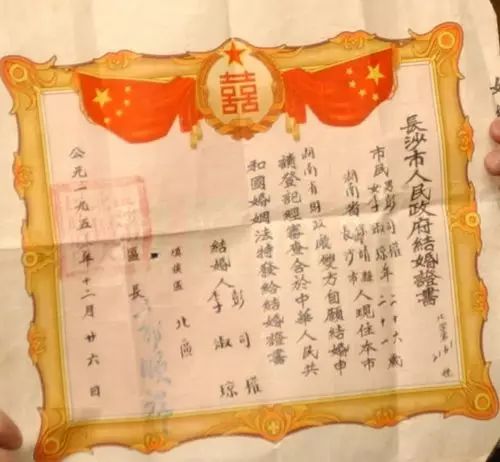 囍
長沙市人民政府結婚證書
市民
男彭司權年二十六歲
女李淑琼年二十一
湖南省
縣人現住本市
長沙市
湖南省財政廳雙方自願結婚申
請登記經審查合於中華人民共
和國婚姻法特發給結婚證書
結婚人
彭司權
李淑琼
填發區 北區
區長
公元一九五
年十二月廿六日